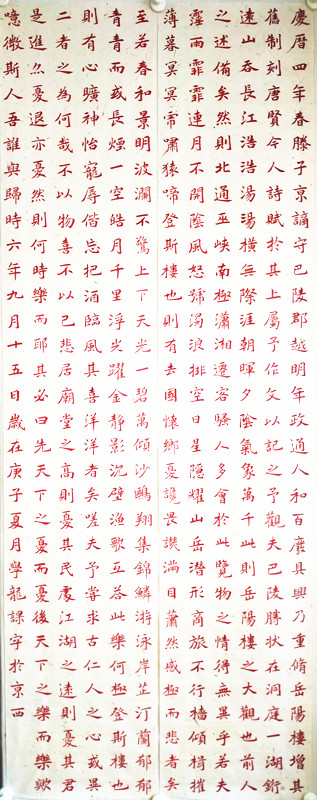 慶曆四年春滕子京謫守巴陵郡越明年政通人和百廢具興乃重脩岳陽樓增其
舊制刻唐賢今人詩賦於其上屬予作文以記之予觀夫巴陵勝狀在洞庭一湖銜
遠山吞長江浩浩湯湯橫無際涯朝暉夕陰氣象萬千此則岳陽樓之大觀也前人
之述備矣然則北通巫峽南極瀟湘遷客騷人多會於此覽物之情得無異乎若夫
霪雨霏霏連月不開陰風怒號濁浪排空日星隱耀山岳潛形商旅不行檣傾楫摧
薄暮冥冥虎嘯猿啼登斯樓也則有去國懷鄉憂讒畏譏滿目蕭然感極而悲者矣
至若春和景明波瀾不驚上下天光一碧萬傾沙鷗翔集錦鱗游泳岸芷汀蘭郁郁
青青而或長煙一空皓月千里浮光躍金靜影沉璧漁歌互答此樂何極登斯樓也
則有心曠神怡寵辱偕忘把酒臨風其喜洋洋者矣嗟夫予嘗求古仁人之心或異
二者之為何哉不以物喜不以己悲居廟堂之高則憂其民處江湖之遠則憂其
是進亦憂退亦憂然則何時樂而耶其必曰先天下之憂而憂後天下之樂而樂歟
噫微斯人吾誰與歸時六年九月十五日歲在庚子夏月學龍課字於京西